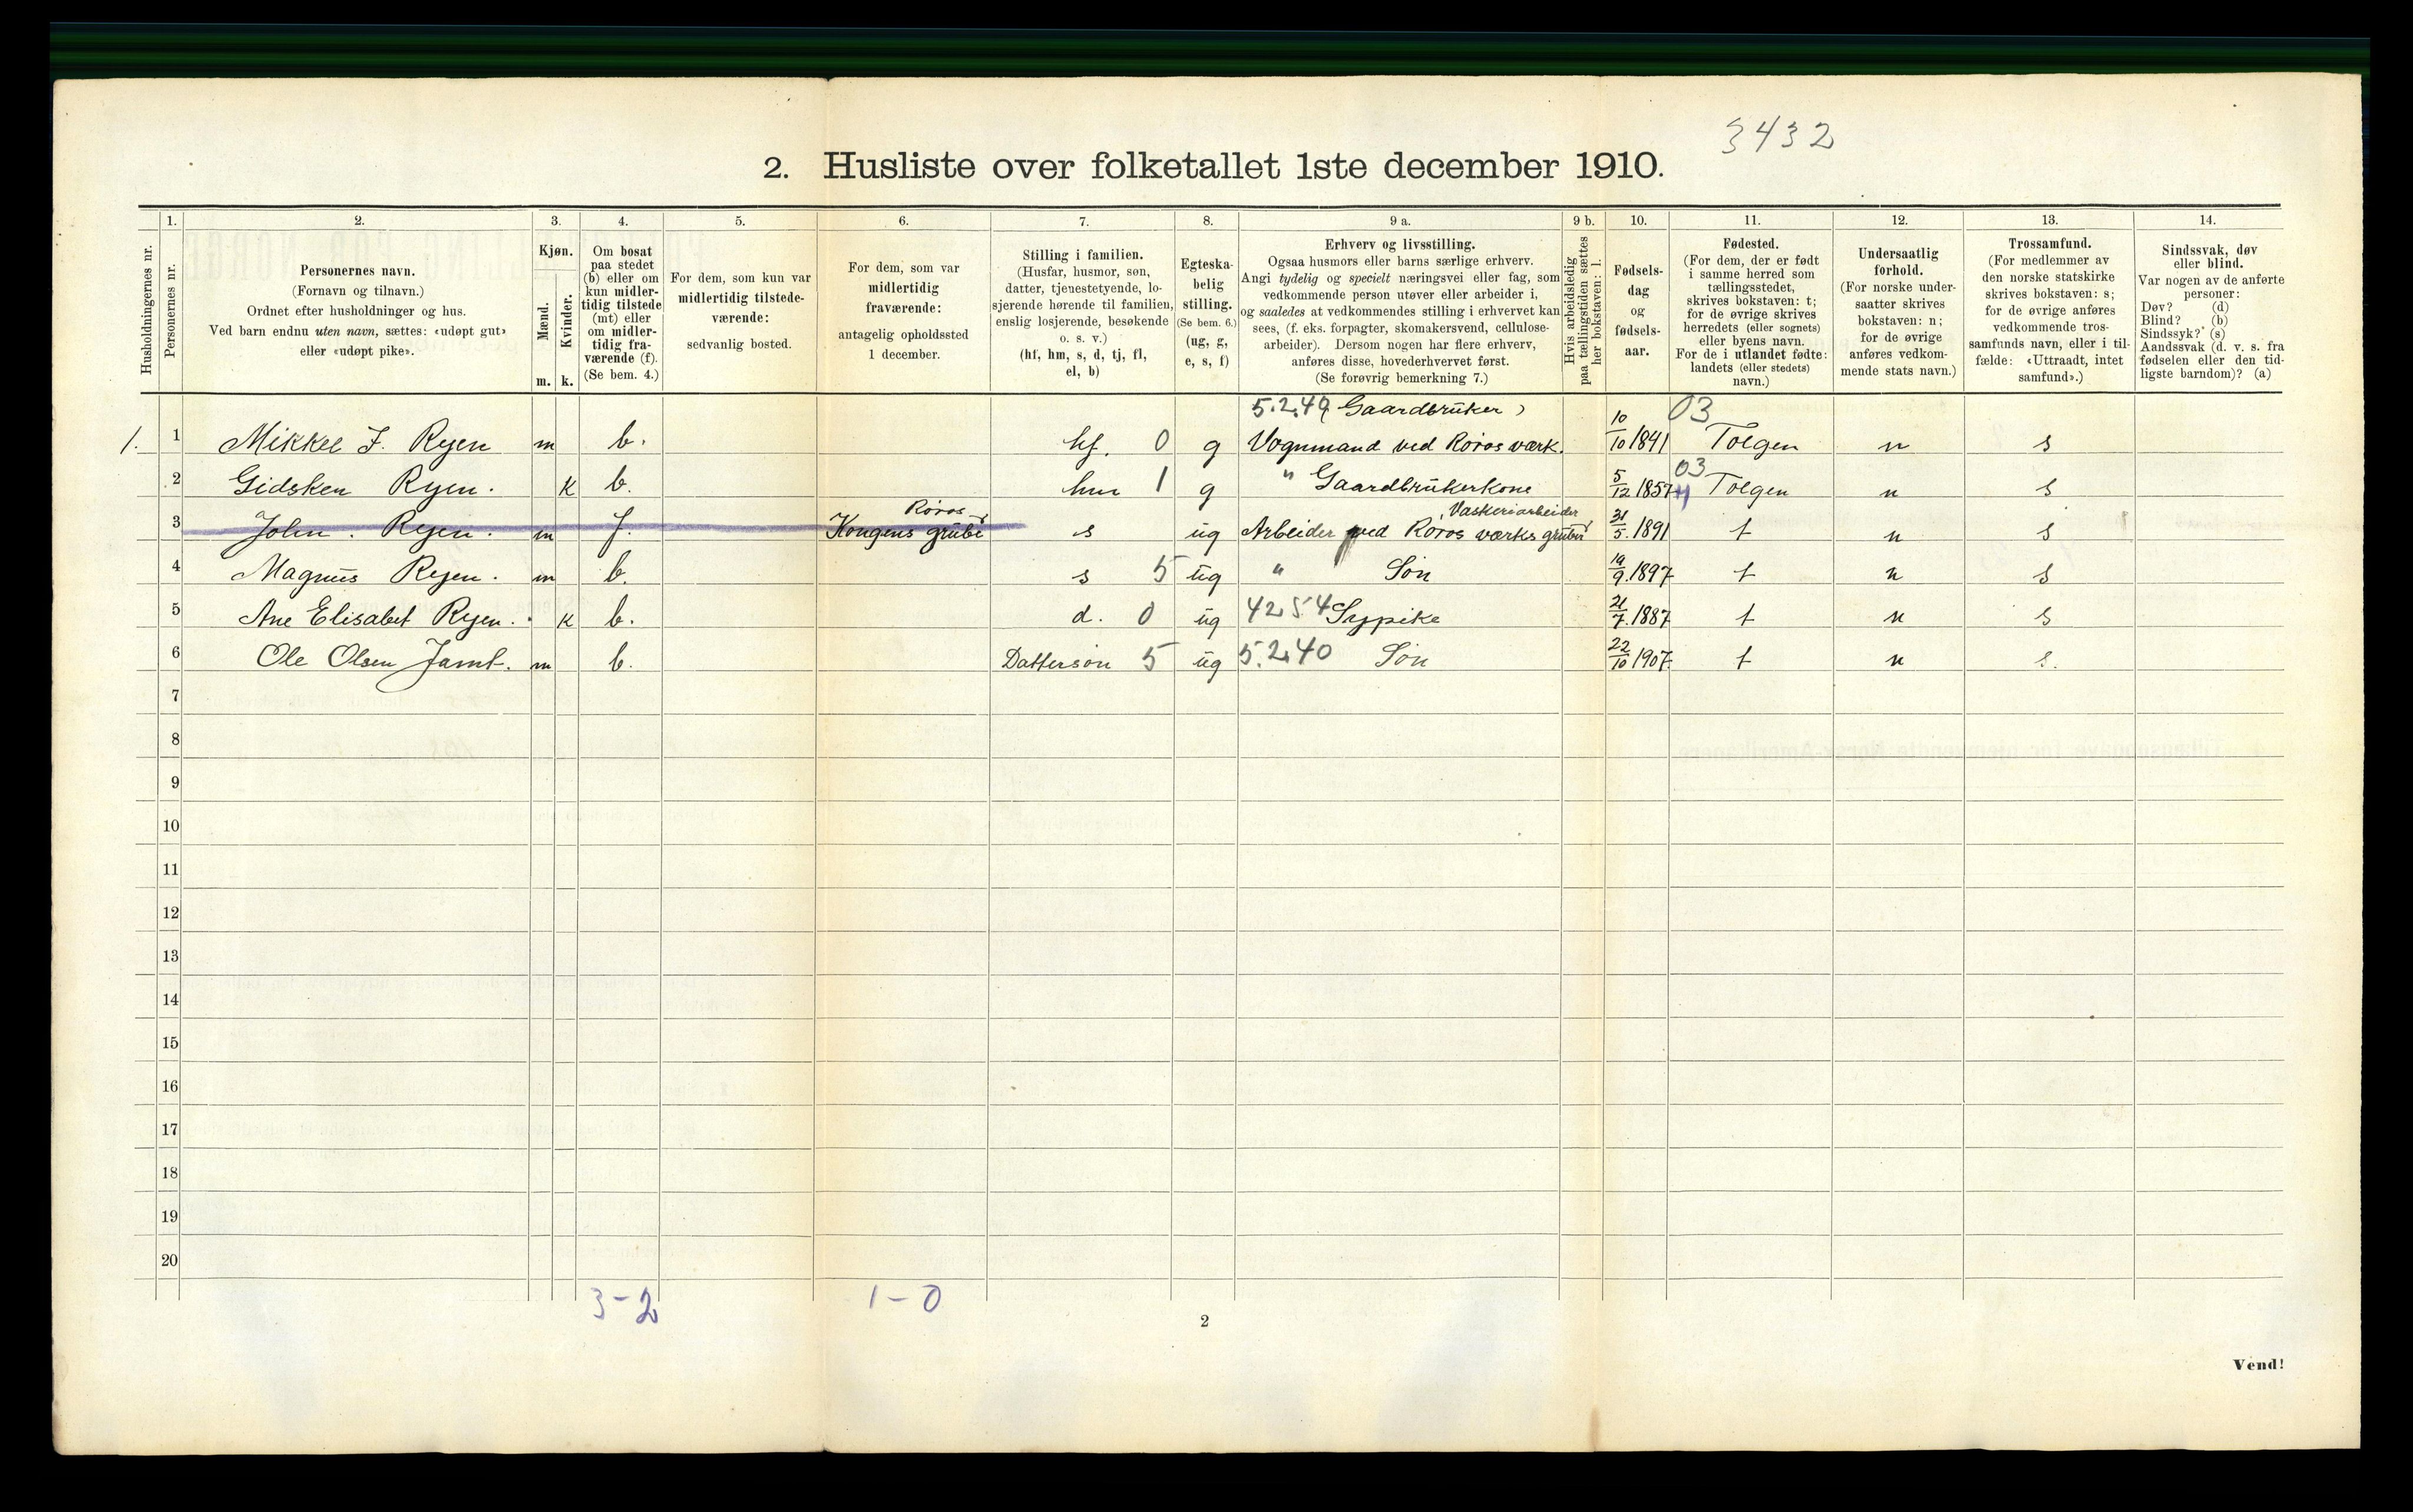 3432
2. Husliste over folketallet 1ste december 1910.
Husholdningernes nr.
1.
Personernes nr.
2.
Personernes navn.
(Fornavn og tilnavn.)
Ordnet efter husholdninger og hus.
Ved barn endnu uten navn, sættes: «udøpt gut»
eller «udøpt pike».
3.
Kjøn.
Mænd.
m.
Kvinder.
k.
4.
Om bosat
paa stedet
(b) eller om
kun midler-
tidig tilstede
(mt) eller
om midler-
tidig fra-
værende (f).
(Se bem. 4.)
5.
For dem, som kun var
midlertidig tilstede-
værende:
sedvanlig bosted.
6.
For dem, som var
midlertidig
fraværende:
antagelig opholdssted
1 december.
7.
Stilling i familien.
(Husfar, husmor, søn,
datter, tjenestetyende, lo-
sjerende hørende til familien,
enslig losjerende, besøkende
o. s. v.)
(hf, hm, s, d, tj, fl,
el, b)
8.
Egteska-
belig
stilling.
(Se bem. 6.)
(ug, g,
e, s, f)
9 a.
Erhverv og livsstilling.
Ogsaa husmors eller barns særlige erhverv.
Angi tydelig og specielt næringsvei eller fag, som
vedkommende person utøver eller arbeider i,
og saaledes at vedkommendes stilling i erhvervet kan
sees, (f. eks. forpagter, skomakersvend, cellulose-
arbeider). Dersom nogen har flere erhverv,
anføres disse, hovederhvervet først.
(Se forøvrig bemerkning 7.)
9 b.
Hvis arbeidsledig
paa tællingstiden sættes
her bokstaven: l.
10.
Fødsels-
dag
og
fødsels-
aar.
11.
Fødested.
(For dem, der er født
i samme herred som
tællingsstedet,
skrives bokstaven: t;
for de øvrige skrives
herredets (eller sognets)
eller byens navn.
For de i utlandet fødte:
landets (eller stedets)
navn.)
12.
Undersaatlig
forhold.
(For norske under-
saatter skrives
bokstaven: n;
for de øvrige
anføres vedkom-
mende stats navn.)
13.
Trossamfund.
(For medlemmer av
den norske statskirke
skrives bokstaven: s;
for de øvrige anføres
vedkommende tros-
samfunds navn, eller i til-
fælde: «Uttraadt, intet
samfund».)
14.
Sindssvak, døv
eller blind.
Var nogen av de anførte
personer:
Døv? (d)
Blind? (b)
Sindssyk? (s)
Aandssvak (d. v. s. fra
fødselen eller den tid-
ligste barndom)? (a)
5.2.49 (Gaardbrūker) 03
1. 1 Mikkel J. Ryen m b. hf. 0 g Vognmand ved Røros værk. 10/10 1841 Tolgen n s
03
2 Gidsken Ryen. K b. hm 1 g " Gaardbrūkerkone 5/12 1857 Tolgen n s
Røros Vaskeriarbeider
3 John. Ryen. m f. Kongens grūbe s ug Arbeider ved Røros værks grūber 31/5 1891 t n s
4 Magnūs Ryen. m b. s 5 ūg " Søn 19/9 1897 t n s
5 Ane Elisabet Ryen. K b. d. 0 ūg 42 5 4 Sypike 21/7 1887 t n s
6 Ole Olsen Jamt. m b. Dattersøn 5 ūg 5.2.40 Søn 22/10 1907 t n s.
7
8
9
10
11
12
13
14
15
16
17
18
19
20
3-2 1-0
2
Vend!